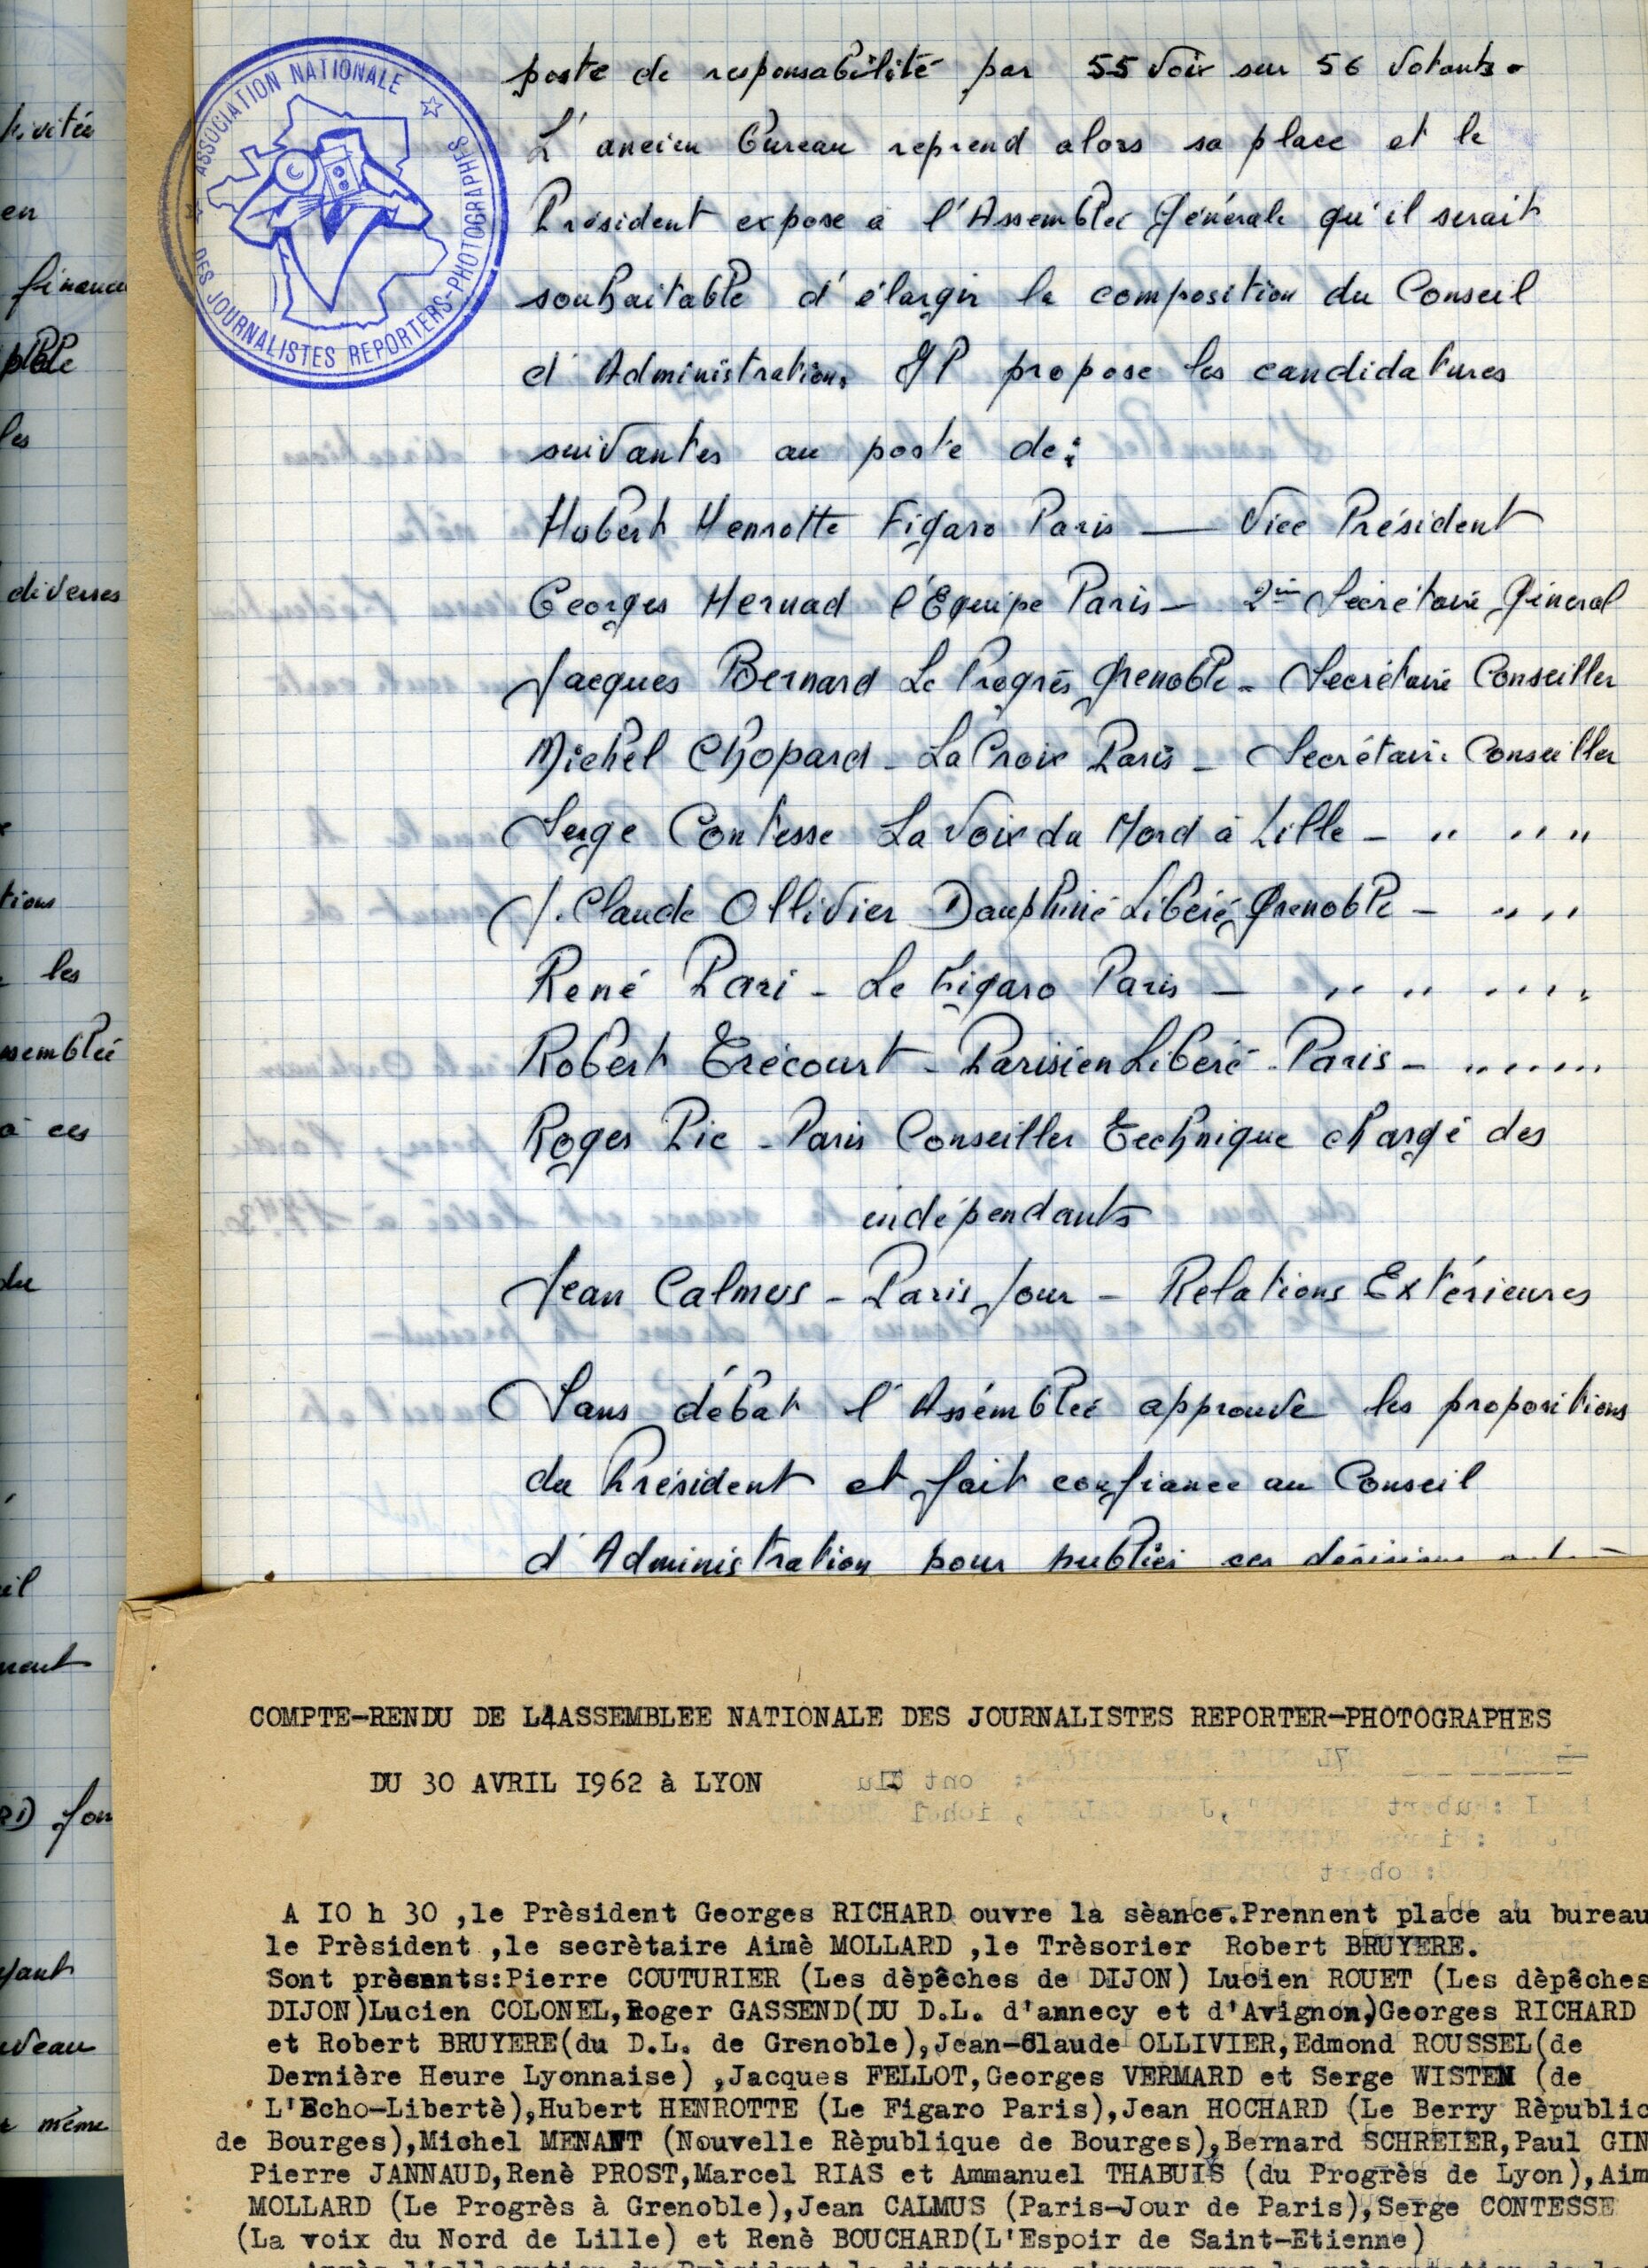 ASSOCIATION NATIONALE
DES JOURNALISTES REPORTERS-PHOTOGRAPHES
poste de responsabilité par 55 voix sur 56 votants.
L'ancien bureau reprend alors sa place et le
Président expose à l'Assemblée Générale qu'il serait
souhaitable d'élargir la composition du Conseil
d'Administration. Il propose les candidatures
suivantes au poste de:
Hubert Henrotte Figaro Paris — Vice Président
Georges Hernad l'Equipe Paris — 2ème Secrétaire Général
Jacques Bernard Le Progrès Grenoble - Secrétaire Conseiller
Michel Chopard - La Croix Paris - Secrétaire Conseiller
Serge Contesse La Voix du Nord à Lille - " " "
J. Claude Ollivier Dauphiné Libéré Grenoble - " "
René Pari - Le Figaro Paris - " " " "
Robert Trécourt - Parisien Libéré - Paris - " " "
Roger Pic - Paris Conseiller Technique chargé des
indépendants
Jean Calmus - Paris Jour - Relations Extérieures
Sans débat l'Assemblée approuve les propositions
du Président et fait confiance au Conseil
d'Administration pour publier ces décisions
vitée
en
finance
les
diverses
tions
les
semblée
à ces
du
il
ment
veau
même
COMPTE-RENDU DE L4ASSEMBLEE NATIONALE DES JOURNALISTES REPORTER-PHOTOGRAPHES
DU 30 AVRIL I962 à LYON
A IO h 30 ,le Prèsident Georges RICHARD ouvre la sèance.Prennent place au bureau
le Prèsident ,le secrètaire Aimè MOLLARD ,le Trèsorier Robert BRUYERE.
Sont prèsents:Pierre COUTURIER (Les dèpêches de DIJON) Lucien ROUET (Les dèpêches
DIJON)Lucien COLONEL,Roger GASSEND(DU D.L. d'annecy et d'Avignon)Georges RICHARD
et Robert BRUYERE(du D.L. de Grenoble),Jean-Claude OLLIVIER,Edmond ROUSSEL(de
Dernière Heure Lyonnaise) ,Jacques FELLOT,Georges VERMARD et Serge WISTEN (de
L'Echo-Libertè),Hubert HENROTTE (Le Figaro Paris),Jean HOCHARD (Le Berry Rèpublic
de Bourges),Michel MENANT (Nouvelle Rèpublique de Bourges),Bernard SCHREIER,Paul GIN
Pierre JANNAUD,Renè PROST,Marcel RIAS et Ammanuel THABUIS (du Progrès de Lyon),Aim
MOLLARD (Le Progrès à Grenoble),Jean CALMUS (Paris-Jour de Paris),Serge CONTESSE
(La voix du Nord de Lille) et Renè BOUCHARD(L'Espoir de Saint-Etienne)